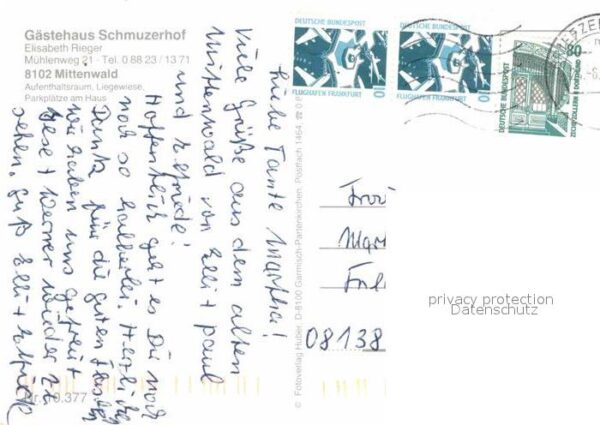 Gästehaus Schmuzerhof
Elisabeth Rieger
Mühlenweg 21 · Tel. 0 88 23 / 13 71
8102 Mittenwald
Aufenthaltsraum, Liegewiese,
Parkplätze am Haus
Liebe Tante Martha!
Viele Grüße aus dem alten
Mittenwald von Elli + Paul
und Elfriede!
Hoffentlich geht es Dir noch
noch so halberlei. Herzlichen
Dank für die guten
wir haben uns gefreut
Gese + Werner wieder zu
sehen. Gruß Elli + Elfriede
Nr. 10.377
© Fotoverlag Huber, D-8100 Garmisch-Partenkirchen, Postfach 1464
DEUTSCHE BUNDESPOST
10
FLUGHAFEN FRANKFURT
DEUTSCHE BUNDESPOST
10
FLUGHAFEN FRANKFURT
DEUTSCHE BUNDESPOST
80
ZECHE ZOLLERN II DORTMUND
08138
privacy protection
Datenschutz